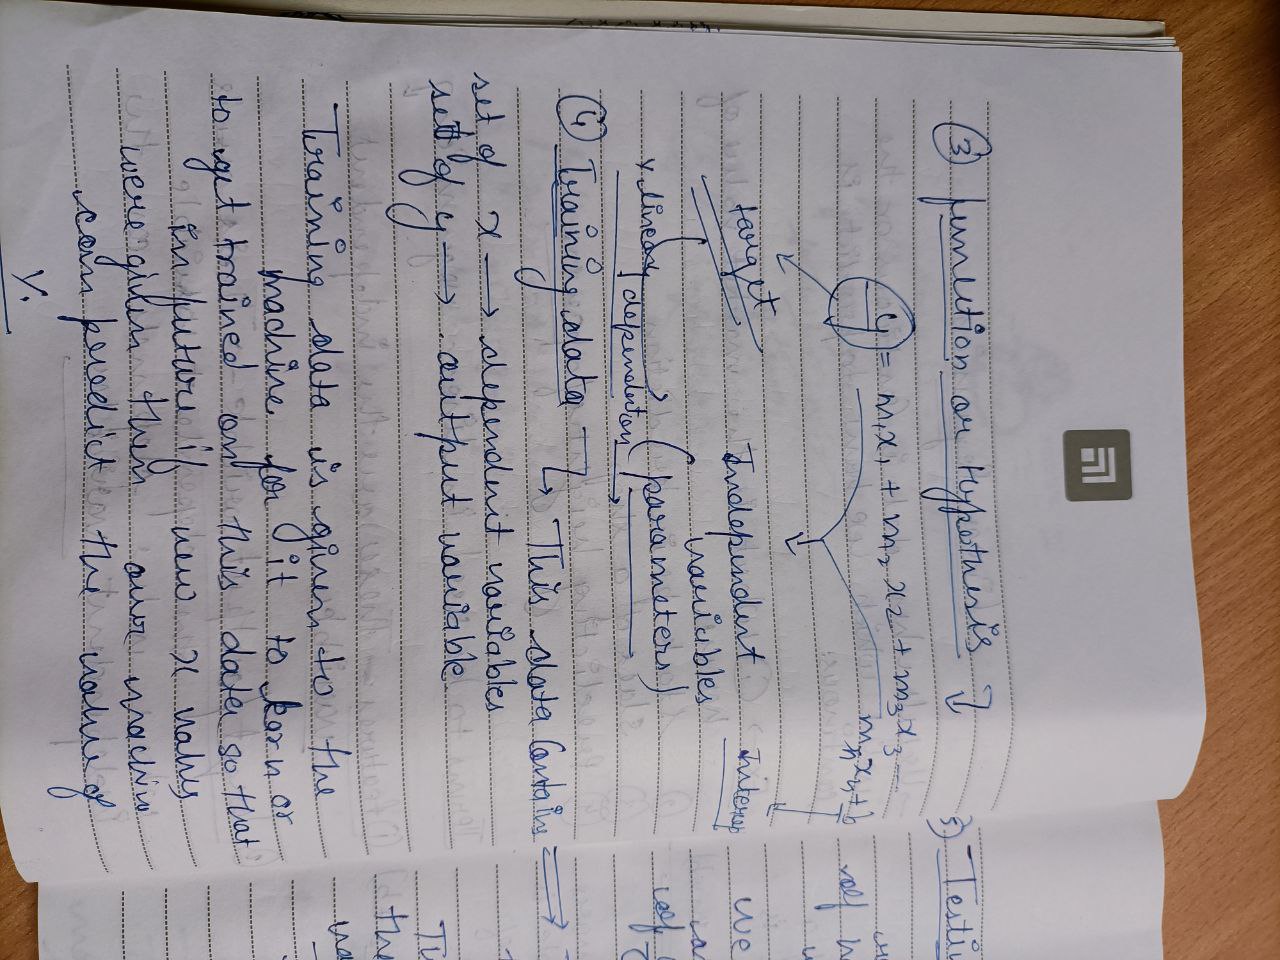 ③ function or Hypothesis
y = m1x1 + m2 x2 + m3x3 ---
mnxn + b
target
Independent
variables
(parameters)
Intercep
y linearly
dependent on
④ Training data
This data Contains
set of x → dependent variables
set of y → output variable
Training data is given to the
machine for it to learn or
to get trained on this data so that
in future if new x values
were given then our machine
can predict the value of
y.
5) Testin
we
the